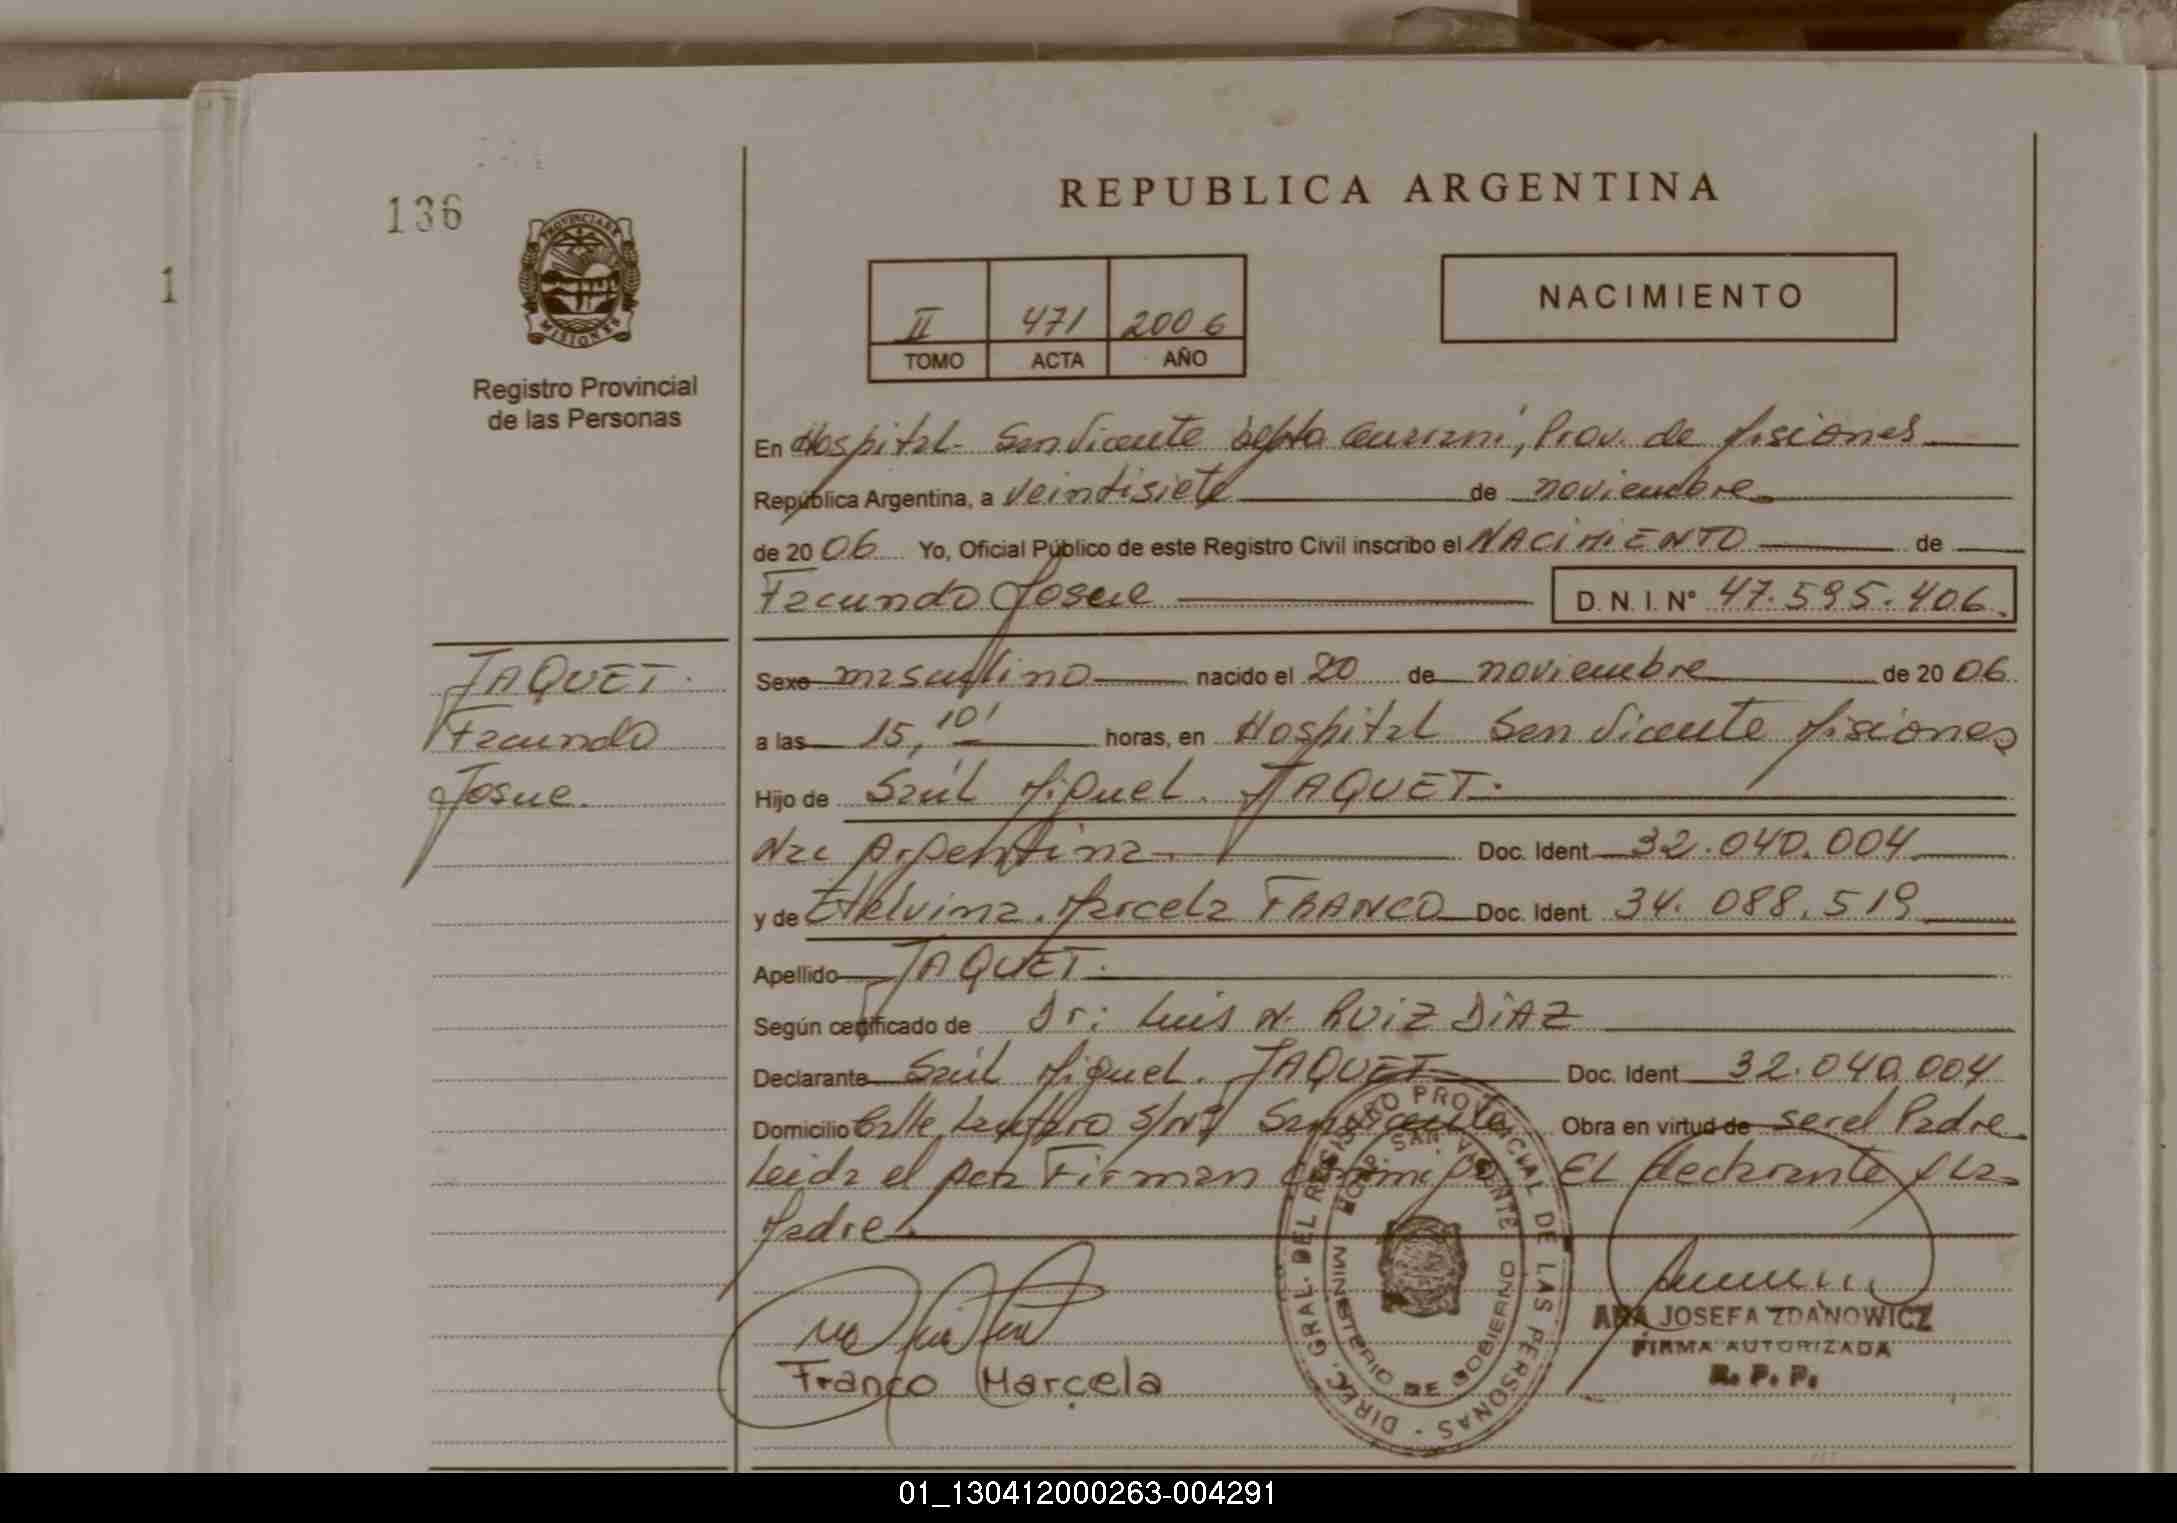 136
1
PROVINCIA DE
MISIONES
Registro Provincial
de las Personas
REPUBLICA ARGENTINA
II 471 2006
TOMO ACTA AÑO
NACIMIENTO
En Hospital San Vicente depto Guarani, Prov. de Misiones
República Argentina, a veintisiete de noviembre
de 2006 Yo, Oficial Público de este Registro Civil inscribo el NACIMIENTO de
Facundo Josue D.N.I. N° 47.595.406.
JAQUET.
Facundo
Josue.
Sexo masculino nacido el 20 de noviembre de 2006
a las 15,10' horas, en Hospital San Vicente Misiones
Hijo de Saúl Miguel. JAQUET.
Nac Argentina Doc. Ident 32.040.004
y de Etelvina. Marcela FRANCO Doc. Ident. 34.088.519
Apellido JAQUET.
Según certificado de Dr: Luis N. RUIZ DIAZ
Declarante Saúl Miguel. JAQUET Doc. Ident 32.040.004
Domicilio Calle Lautaro S/Nº San Vicente. Obra en virtud de ser el Padre
Leida el acta Firman conmigo EL declarante y La
Madre.
Franco Marcela
DIREC. GRAL. DEL REGISTRO PROVINCIAL DE LAS PERSONAS
HOSP. SAN VICENTE
MINISTERIO DE GOBIERNO
ANA JOSEFA ZDANOWICZ
FIRMA AUTORIZADA
R. P. P.
01_130412000263-004291